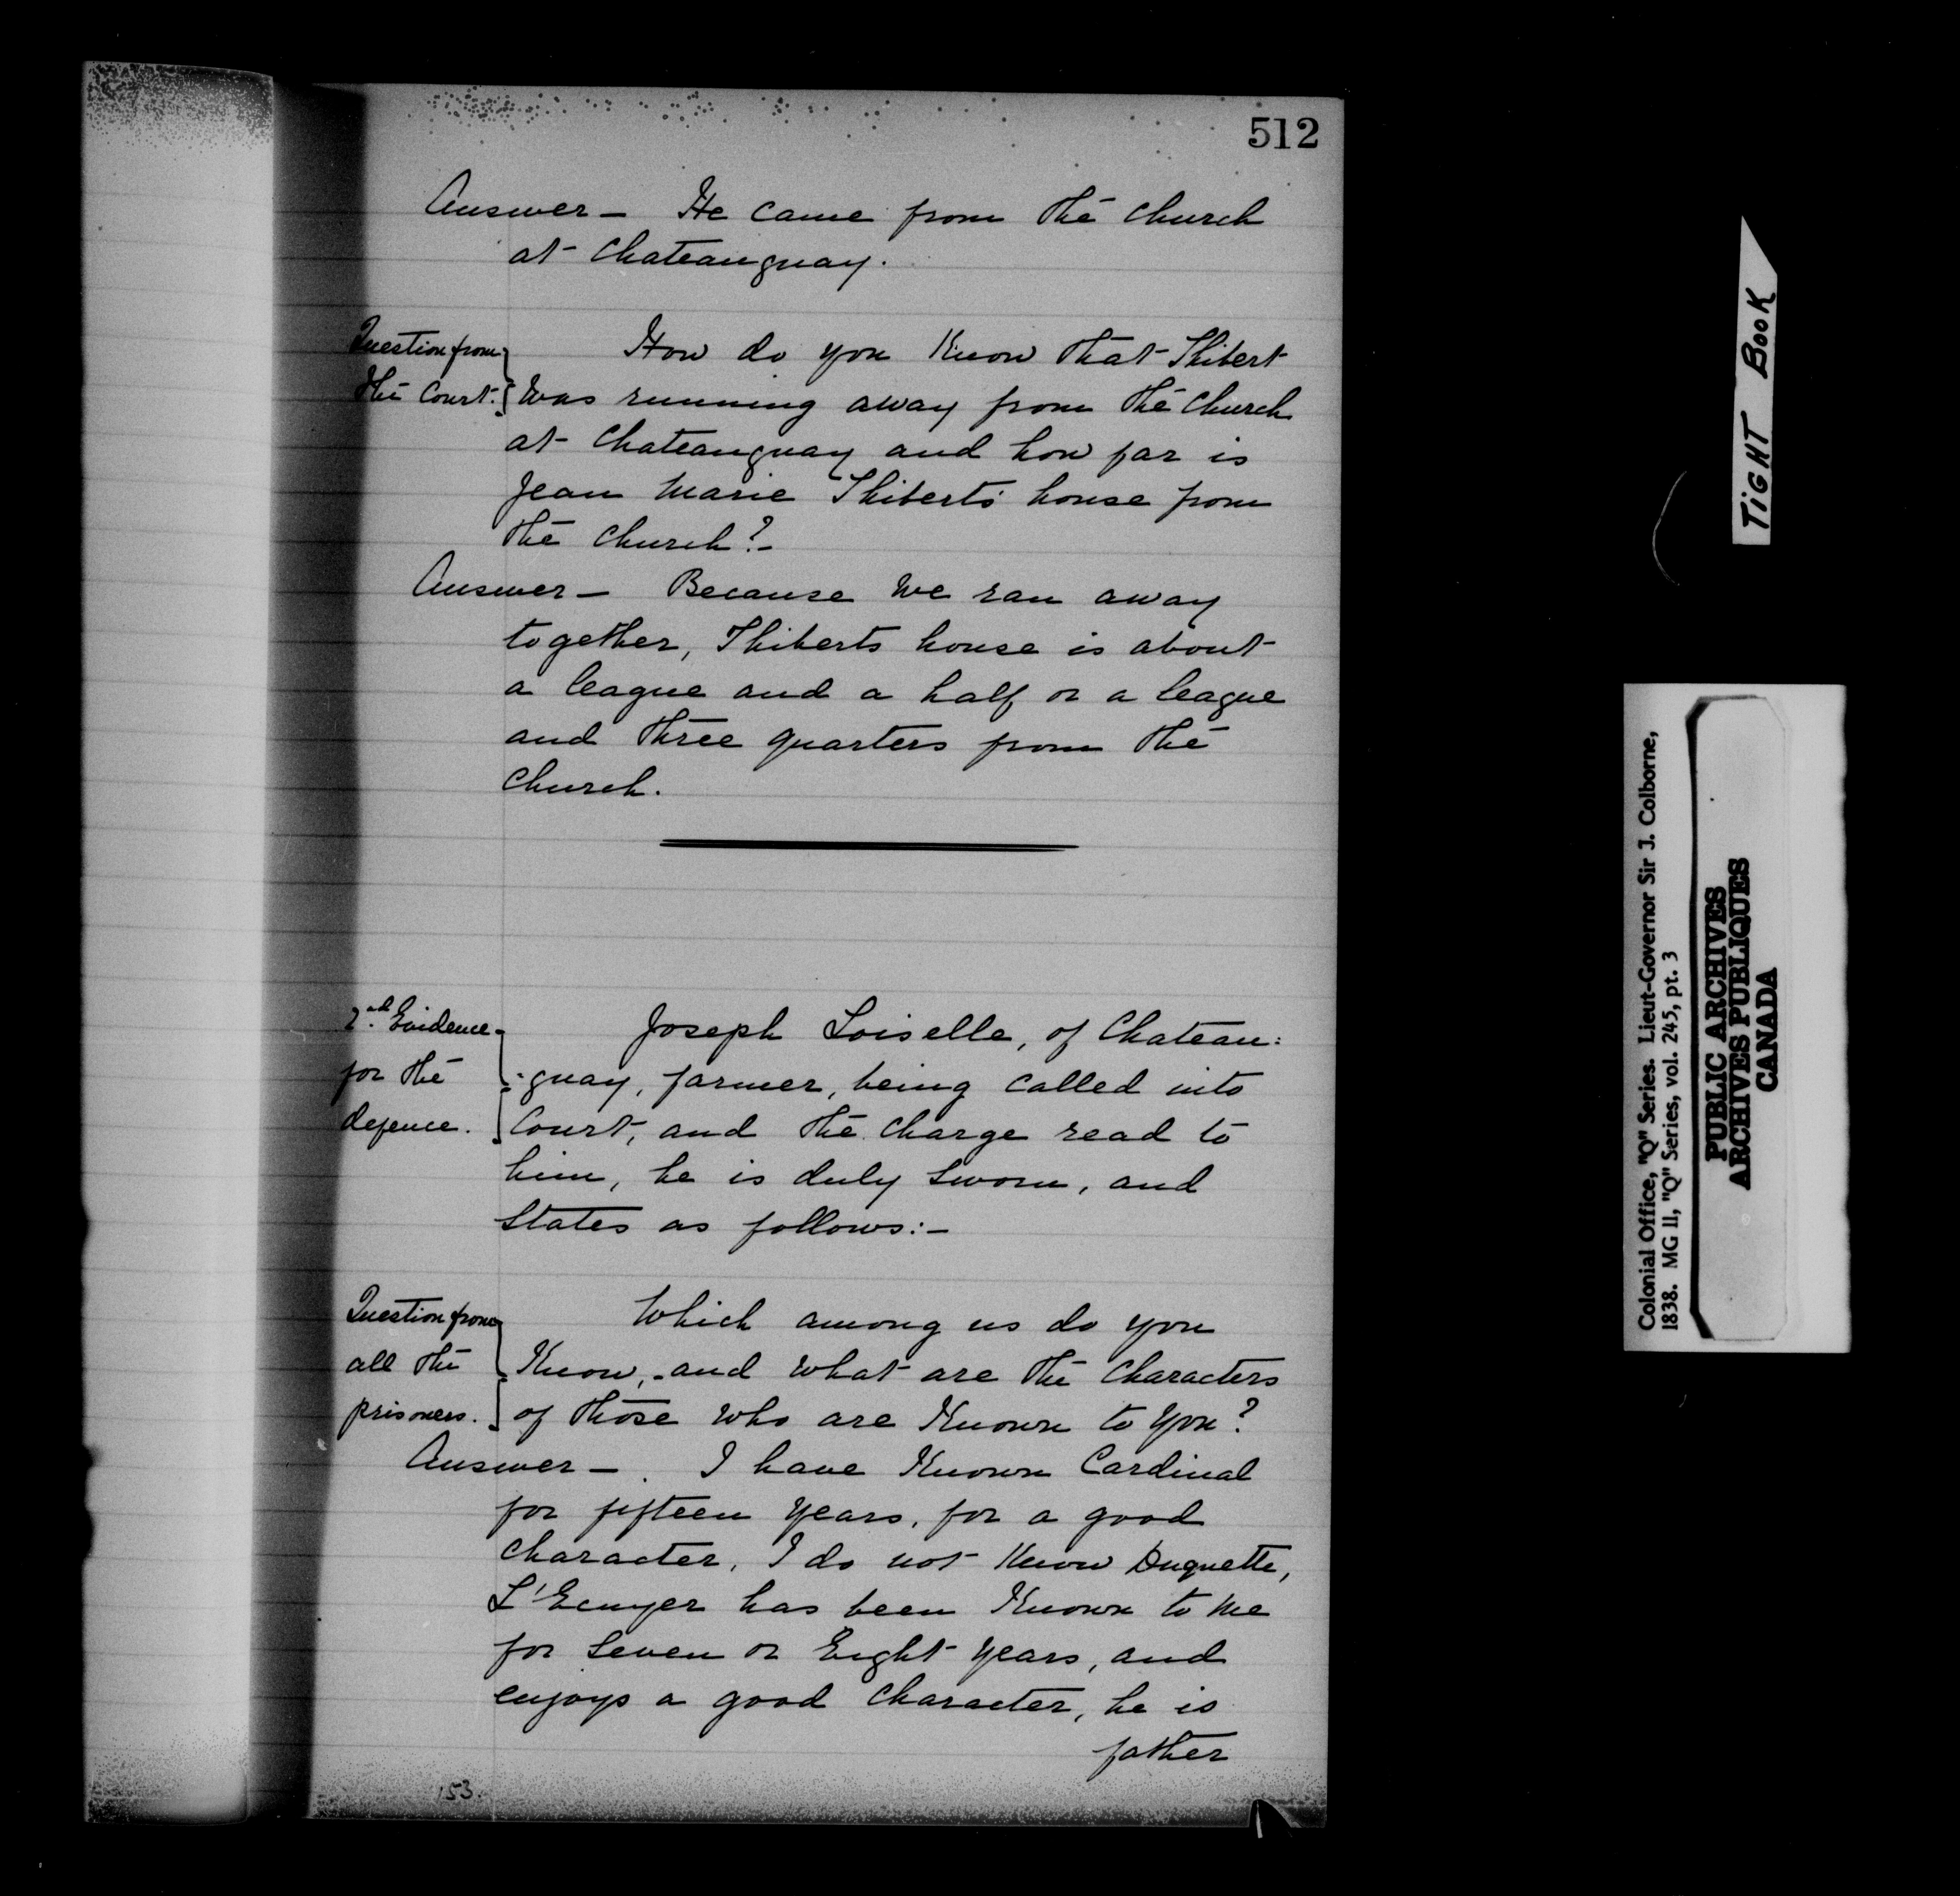 512
Answer - He came from the church
at Chateauguay.
Question from
the Court.
How do you Know that Thibert
was running away from the church
at Chateauguay and how far is
Jean Marie Thibert's house from
the church?-
Answer - Because we ran away
together, Thiberts house is about
a league and a half or a league
and three quarters from the
church.
2nd. Evidence
for the
defence.
Joseph Loiselle, of Chateau:
:guay, farmer, being called into
Court, and the charge read to
him, he is duly sworn, and
States as follows:-
Question from
all the
prisoners.
Which among us do you
Know, and what are the characters
of those who are Known to you?
Answer - I have Known Cardinal
for fifteen years, for a good
character, I do not Know Duquette,
L'Ecuyer has been Known to me
for seven or Eight years, and
enjoys a good character, he is
father
153.
TIGHT BOOK
Colonial Office, "Q" Series. Lieut-Governor Sir J. Colborne,
1838. MG 11, "Q" Series, vol. 245, pt. 3
PUBLIC ARCHIVES
ARCHIVES PUBLIQUES
CANADA